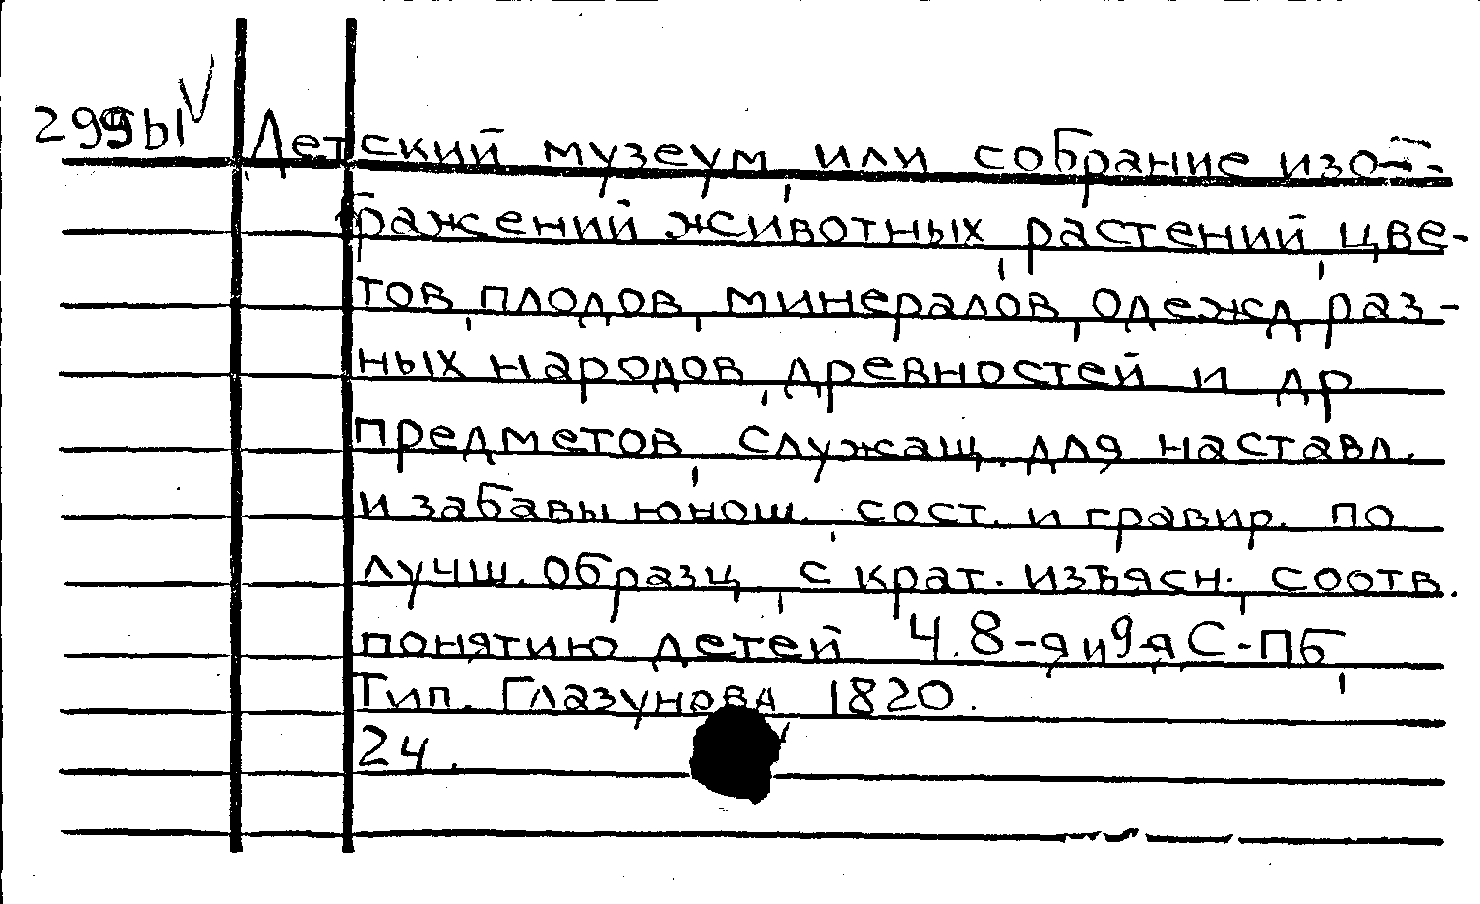 299ы
Детский музеум, или собрание изо-
бражений животных, растений, цве-
тов, плодов, минералов, одежд раз-
ных народов, древностей и др
предметов, служащ. для наставл.
и забавы юнош., сост. и гравир. по
лучш. образц., с крат. изъясн., соотв.
понятию детей Ч. 8-я и 9-я С-ПБ,
Тип. Глазунова 1820.
2ч.